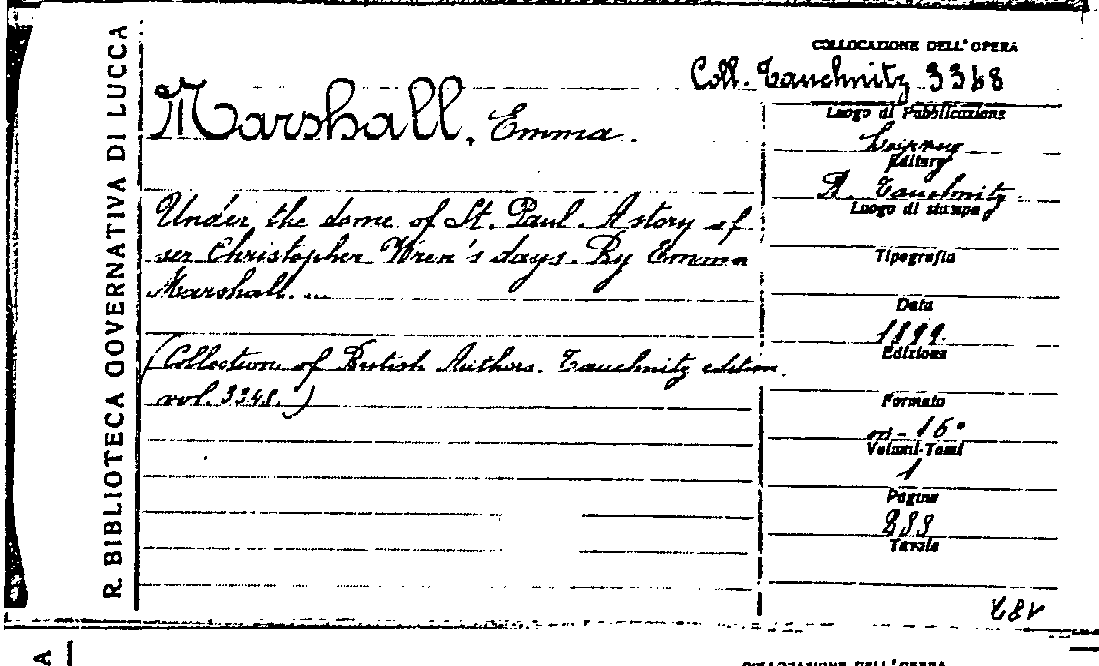 R. BIBLIOTECA GOVERNATIVA DI LUCCA
COLLOCAZIONE DELL'OPERA
Coll. Tauchnitz 3368
Marshall, Emma.
Luogo di Pubblicazione
Leipzig
Editore
B. Tauchnitz
Luogo di stampa
Under the dome of St. Paul. A story of
ser Christopher Wren's days. By Emma
Marshall. ...
Tipografia
Data
1899.
Edizione
(Collection of British Authors. Tauchnitz edition.
vol. 3348.)
Formato
in-16°
Volumi-Tomi
1
Pagine
Tavole
COLLOCAZIONE DELL'OPERA
A